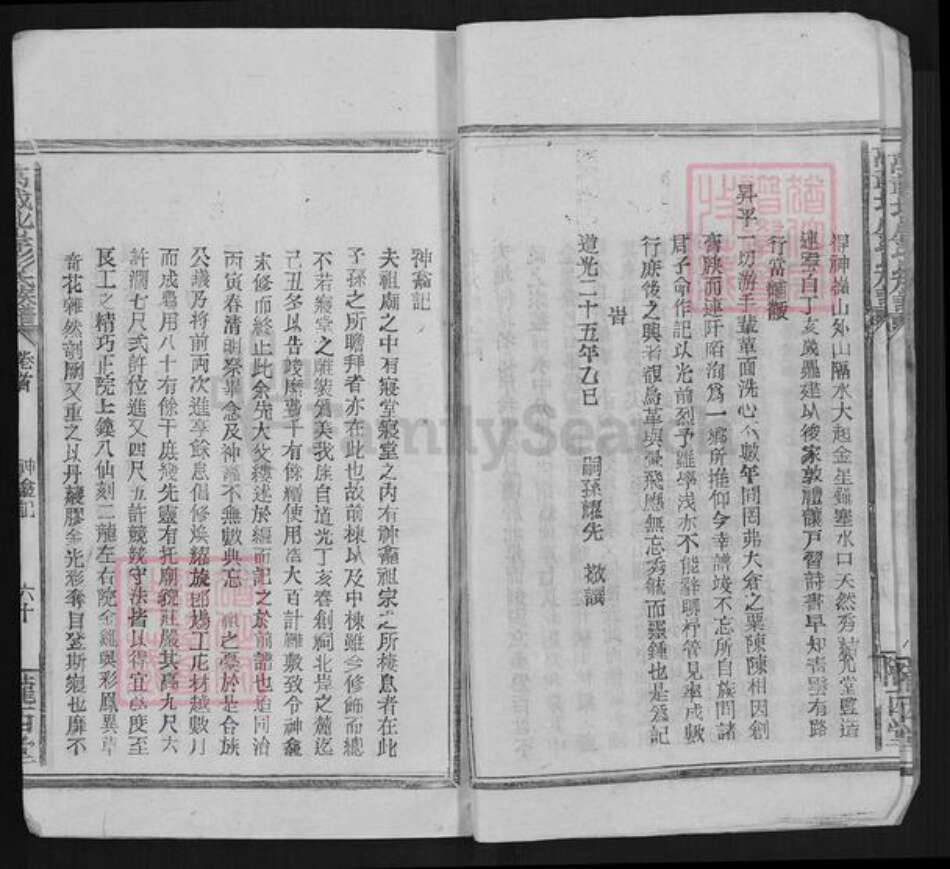 得神操山外山隔水大起金星鎖塞水口天然秀
連雲自丁亥歲鼎建以後家敦禮讓戸習詩書早知靑雲有路
行當翹觀
昇平一切游手輩革面洗心不數年間罔弗大倉之粟陳陳相因創
膏腴而連阡陌洵爲一鄉所推仰今幸譜竣不忘所自族間諸
君子命作記以光前烈予雖學淺亦不能辭聊抒管見率成數
行庶後之興者覩鳥革與翬飛應無忘秀龍而靈鍾也是爲記
旹
道光二十五年乙巳 嗣孫耀先 敬譔
神龕記
夫祖廟之中有寢堂寢堂之內有神龕祖宗之所棲息者在此
子孫之所瞻拜者亦在此也故前棟以及中棟雖令修飾而總
不若寢堂之雕裝爲美我族自道光丁亥春創祠北岸之麓迄
己丑冬以告竣糜費千有餘緡使用浩大百計難敷致令神龕
未修而終止此余先大父縷述於編而記之於前譜也迨同治
丙寅春清明祭畢念及神龕不無數典忘祖之憂於是合族
公議乃將前兩次進享餘息倡修煥耀旋卽鳩工庀材越數月
而成費用八十有餘千庶幾先靈有托廟貌莊嚴其高九尺六
許濶七尺弍許位進又四尺五許兢兢守法皆以得宜爲度至
良工之精巧正院上鐫八仙刻二龍左右院金雞與彩鳳異草
奇花雜然剞劂又重之以丹艧膠金光彩奪目登斯寢也靡不
卷首
神龕記
六十